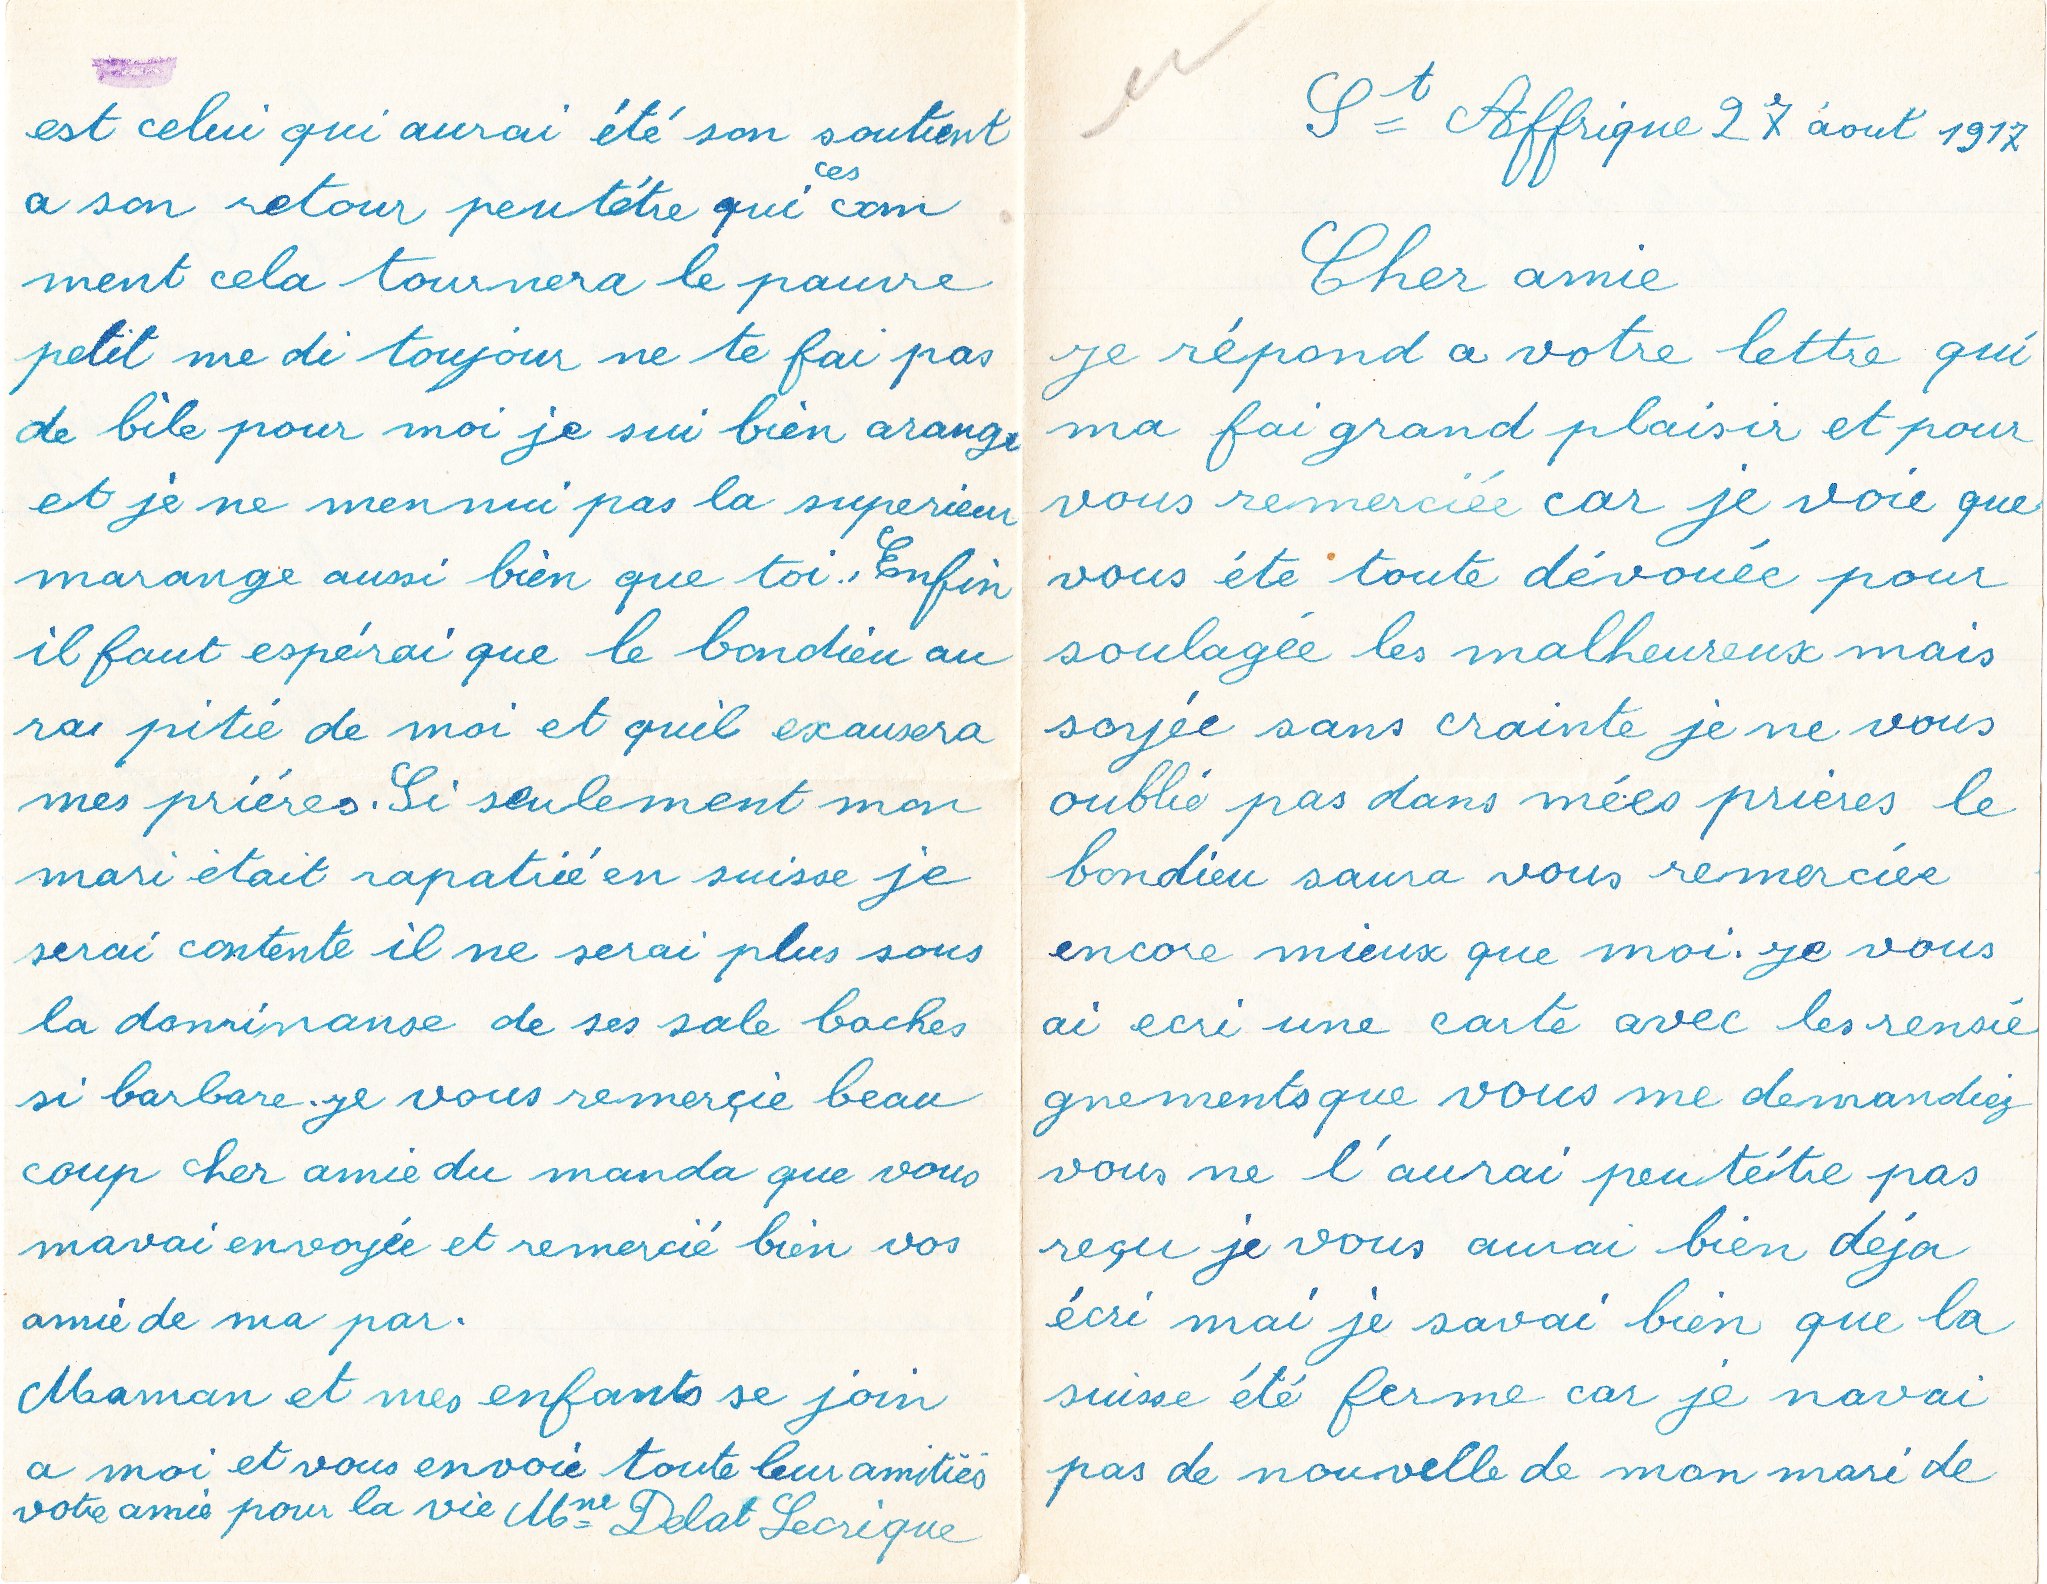 St Affrique 27 aout 1917
Cher amie
je répond a votre lettre qui
ma fai grand plaisir et pour
vous remerciée car je voie que
vous éte toute dévouée pour
soulagée les malheureux mais
soyée sans crainte je ne vous
oublié pas dans mées prières le
bondieu saura vous remerciée
encore mieux que moi. je vous
ai ecri une carte avec les rensié
gnements que vous me demandiez
vous ne l'aurai peutétre pas
reçu je vous aurai bien déja
écri mai je savai bien que la
suisse été ferme car je navai
pas de nouvelle de mon mari de
est celui qui aurai été son soutient
a son retour peutétre qui ces com
ment cela tournera le pauvre
petit me di toujour ne te fai pas
de bile pour moi je sui bien arange
et je ne mennui pas la superieur
marange aussi bien que toi.. Enfin
il faut espérai que le bondieu au
rai pitié de moi et quil exausera
mes priéres. Si seulement mon
mari était rapatrié en suisse je
serai contente il ne serai plus sous
la dominanse de ses sale boches
si barbare. je vous remerçie beau
coup cher amie du manda que vous
mavai envoyée et remercié bien vos
amié de ma par.
Maman et mes enfants se join
a moi et vous envoié toute leur amitiés
votre amie pour la vie Mme Delat Lecrique